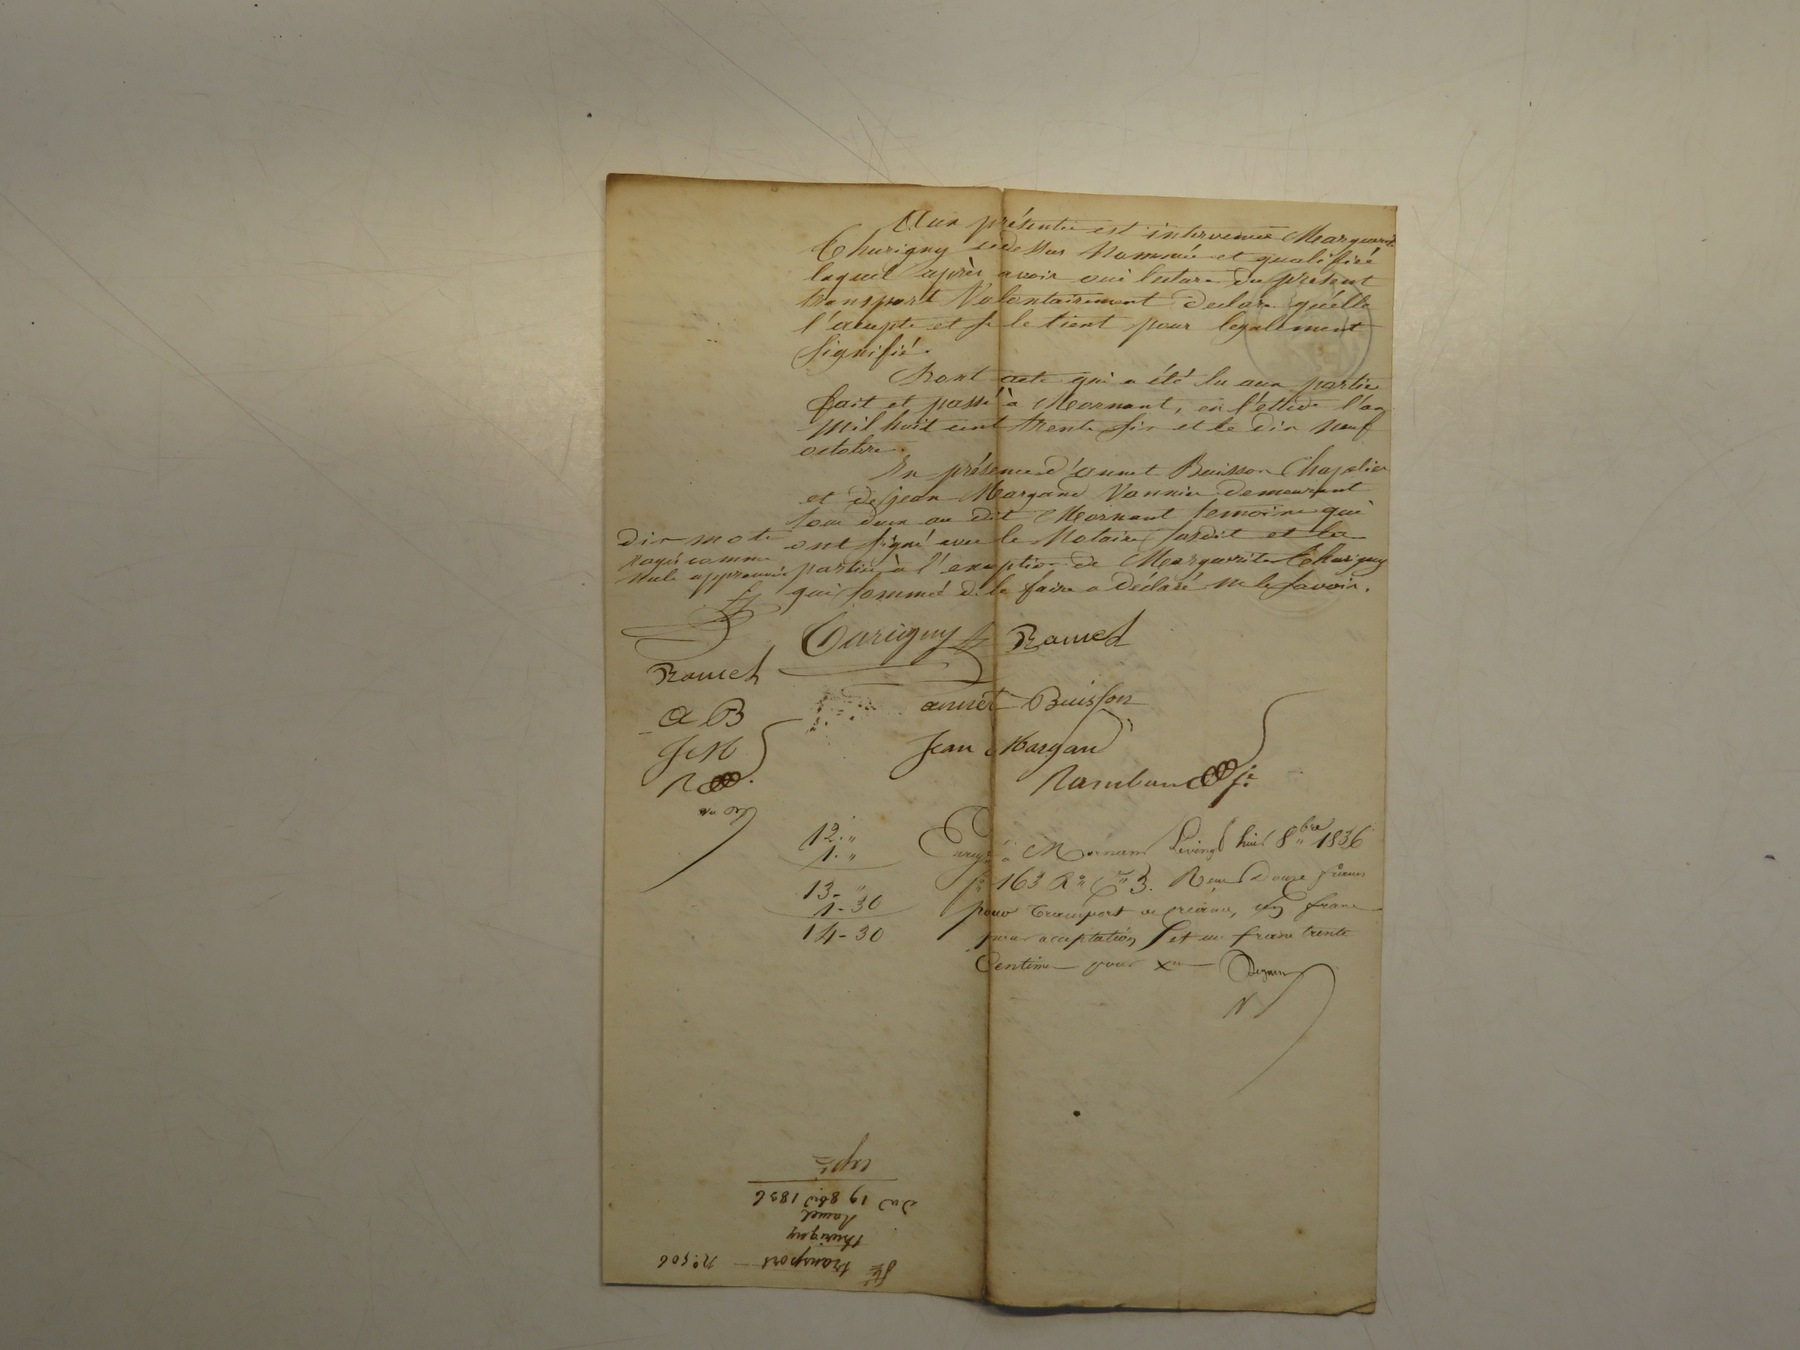 Aux présentes est intervenue Marguerite
Thurigny cidessus Nommée et qualifiée
laquel après avoir oui lecture du présent
transport Volontairement declare qu'elle
l'accepte et se le tient pour legalement
signifié.
Dont acte qui a été lu aux partie
fait et passé à Mornant, en l'etude l'an
mil huit cent trente six et le dix neuf
octobre.
En présence d'annet Buisson Chapelier
et de jean Margand Vannier demeurant
tous deux au dit Mornant temoins qui
ont signé avec le Notaire susdit et les
parties à l'exeption de Marguerite Thurigny
qui sommé de le faire a déclaré ne le savoir.
dix mots
rayé comme
nuls approuvé
Turigny Ramel
Ramel
annet Buisson
A B
Jean Margand
J M
12. "
1. "
13- "
1-30
14-30
à Mornant le vingt huit 8bre 1836
fo 163 Ro Ce 3. Reçu Douze francs
pour transport de créance, un franc
pour acceptation et un franc trente
Centimes pour xe
transport - no 506
thurigny
Ramel
Du 19 8bre 1836